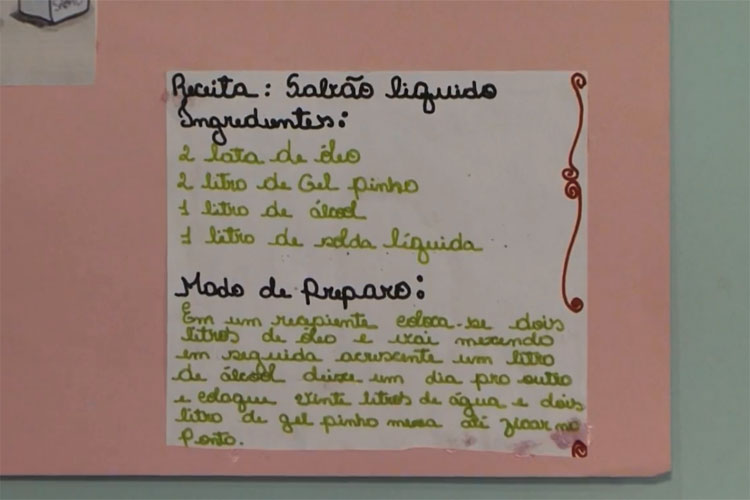 Receita: Sabão líquido
Ingredientes:
2 lata de óleo
2 litro de Gel pinho
1 litro de álcool
1 litro de solda líquida
Modo de Preparo:
Em um recepiente coloca-se dois
litros de óleo e vai mexendo
em seguida acrescente um litro
de álcool deixe um dia pro outro
e coloque vinte litros de água e dois
litro de gel pinho mexa até ficar no
Ponto.